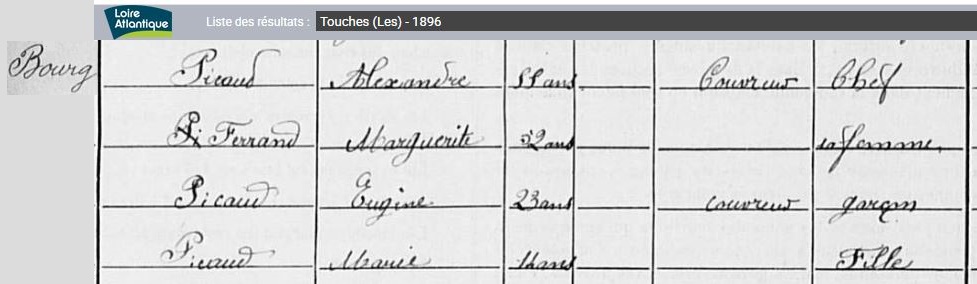 Loire
Atlantique
Liste des résultats : Touches (Les) - 1896
Bourg Picaud Alexandre 55 ans Couvreur Chef
Ferrand Marguerite 52 ans sa femme
Picaud Eugine 23 ans couvreur garçon
Picaud Marie 14 ans Fille